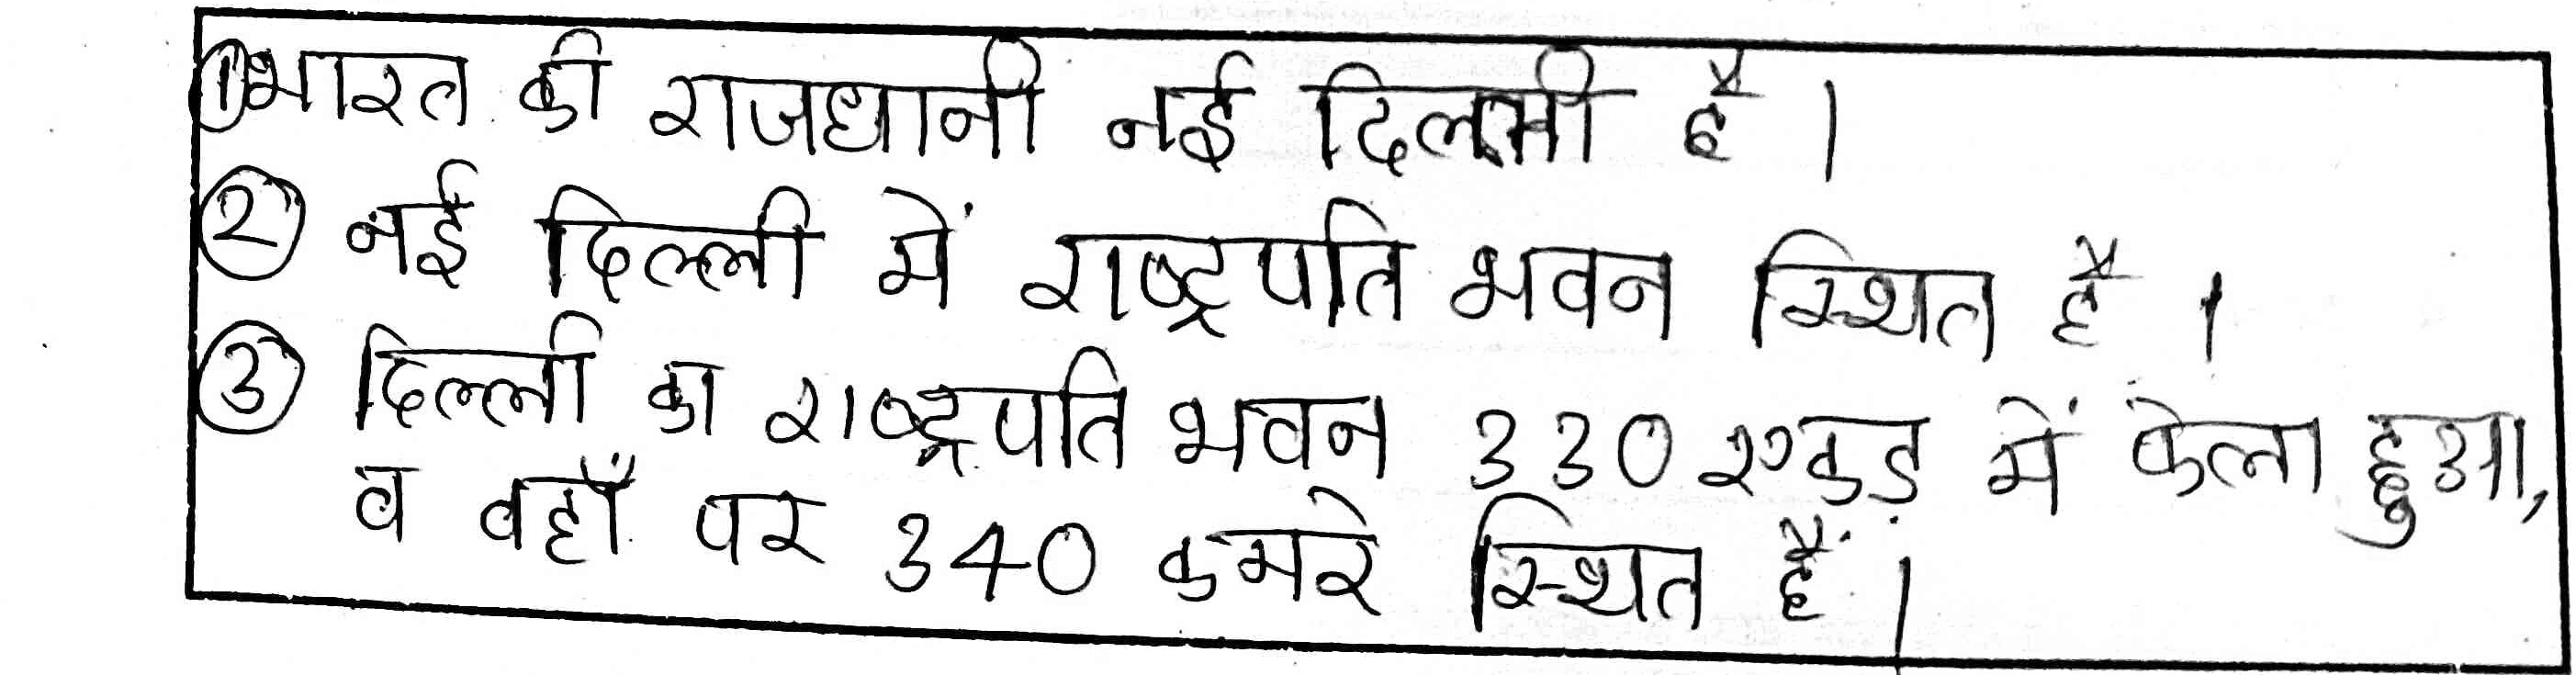 ① भारत की राजधानी नई दिल्ली है।
② नई दिल्ली में राष्ट्रपति भवन स्थित है।
③ दिल्ली का राष्ट्रपति भवन 330 एकड़ में फैला हुआ,
व वहाँ पर 340 कमरे स्थित हैं।